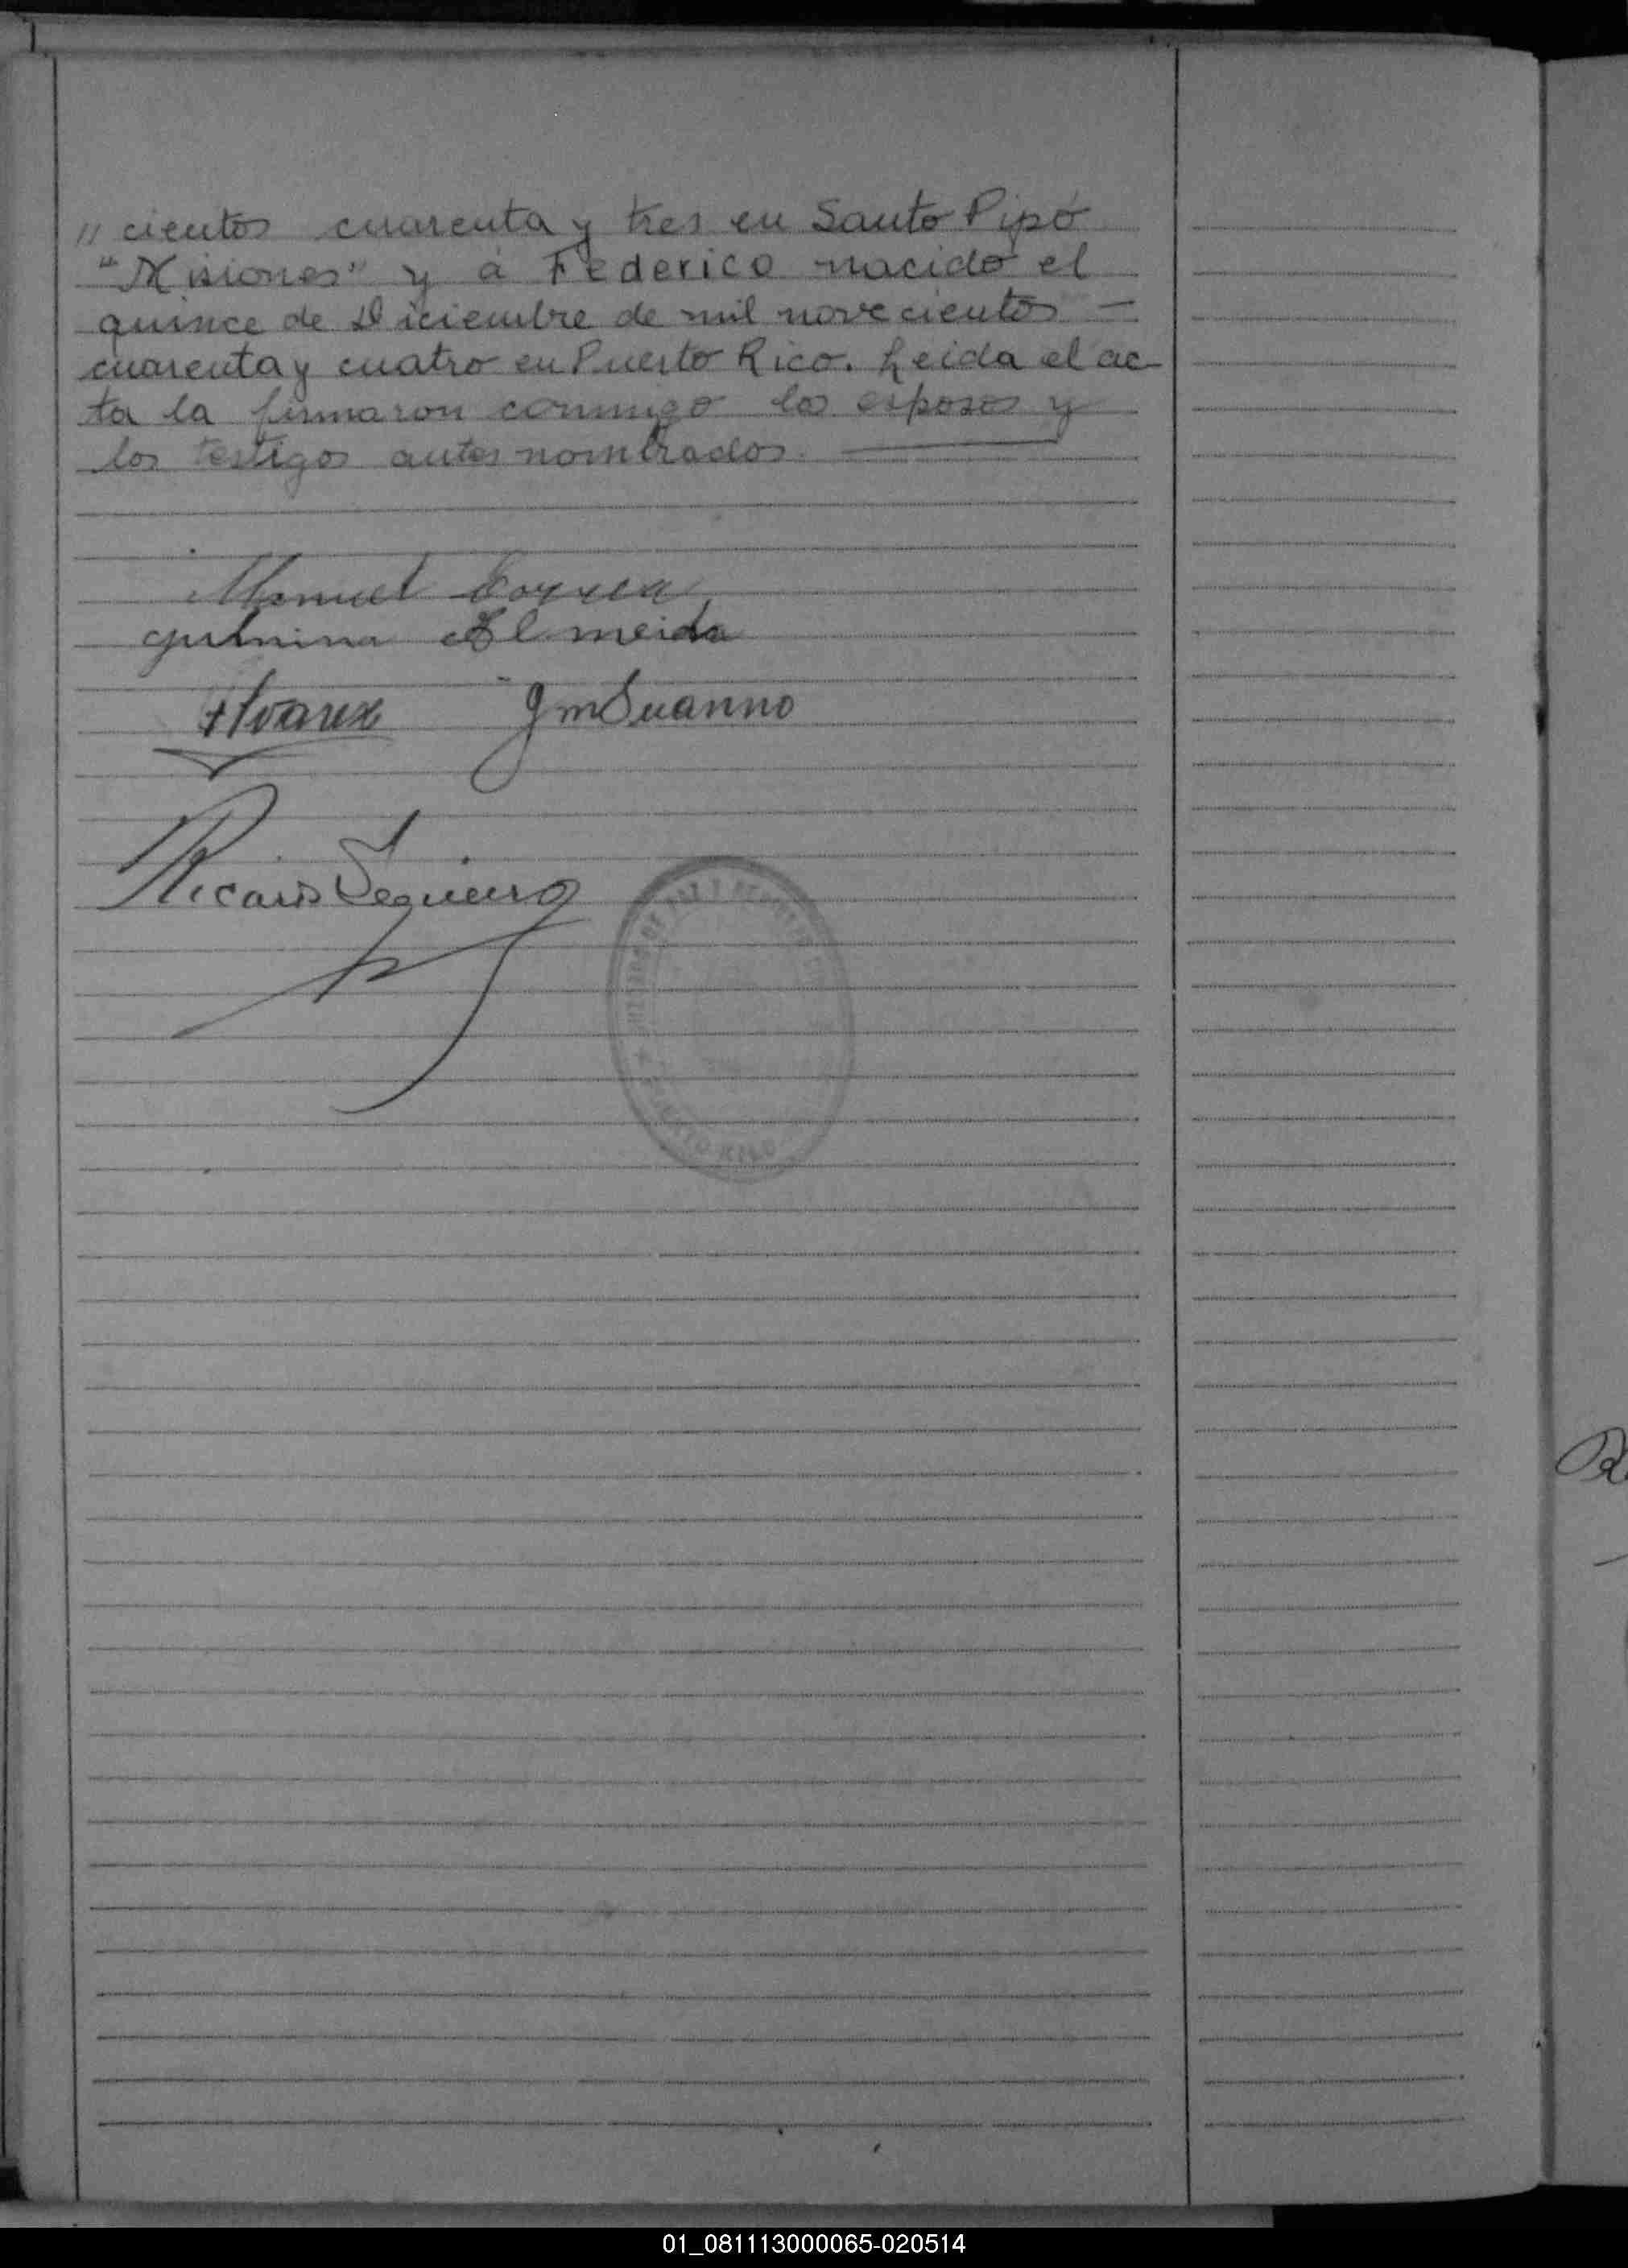 " cientos cuarenta y tres en Santo Pipó
"Misiones" y á Federico nacido el
quince de Diciembre de mil novecientos —
cuarenta y cuatro en Puerto Rico. Leida el ac-
ta la firmaron conmigo los esposos y
los testigos antes nombrados.
Manuel Correa
Almeida
Alvarez JmSuanno
Ricardo
01_081113000065-020514